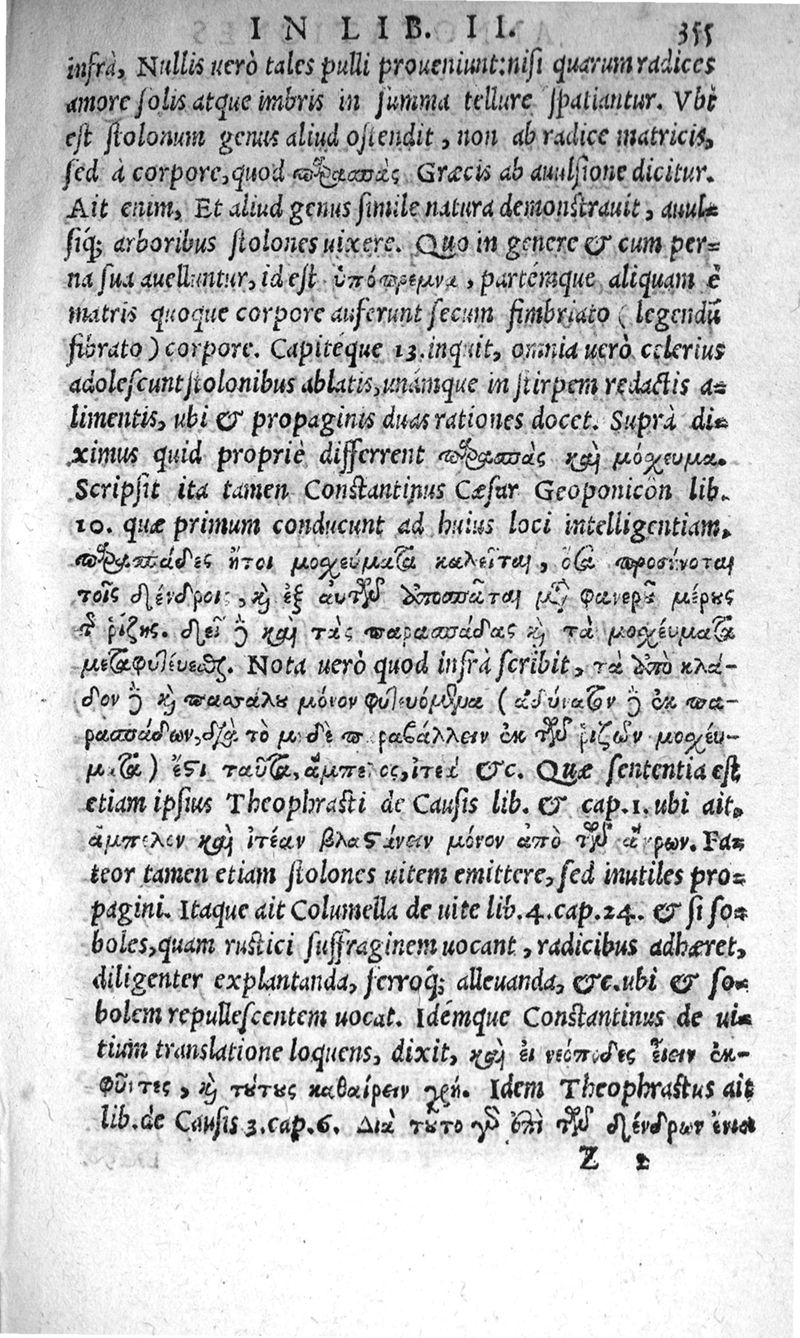 IN LIB. II. 355
infrà, Nullis uerò tales pulli proueniunt: nisi quarum radices
amore solis atque imbris in summa tellure spatiantur. Vbi
est stolonum genus aliud ostendit, non ab radice matricis,
sed à corpore, quod παρασπὰς Græcis ab auulsione dicitur.
Ait enim, Et aliud genus simile natura demonstrauit, auul-
siq; arboribus stolones uixere. Quo in genere & cum per-
na sua auelluntur, id est ὑπόπρεμνα, partémque aliquam è
matris quoque corpore auferunt secum fimbriato (legendū
fibrato) corpore. Capitéque 13. inquit, omnia uerò celerius
adolescunt stolonibus ablatis, unámque in stirpem redactis a-
limentis, ubi & propaginis duas rationes docet. Suprà di-
ximus quid propriè differrent παρασπὰς καὶ μόχευμα.
Scripsit ita tamen Constantinus Cæsar Geoponicôn lib.
10. quæ primum conducunt ad huius loci intelligentiam,
παρασπάδες ἤτοι μοχεύματα καλεῖται, ὅσα προσίνοται
τοῖς δένδροις, καὶ ἐξ αὐτῶν ἀποσπᾶται μετὰ φανεροῦ μέρους
τῆς ῥίζης. δεῖ δὲ καὶ τὰς παρασπάδας καὶ τὰ μοχεύματα
μεταφυτεύεσθαι. Nota uerò quod infrà scribit, τὰ ἀπὸ κλά-
δον δὲ καὶ πασσάλου μόνον φυτευόμενα (ἀδύνατον δὲ ἐκ πα-
ρασπάδων, διὰ τὸ μηδὲ παραβάλλειν ἐκ τῶν ῥιζῶν μοχεύ-
ματα) ἔστι ταῦτα, ἄμπελος, ἰτέα &c. Quæ sententia est
etiam ipsius Theophrasti de Causis lib. & cap. 1. ubi ait,
ἄμπελεν καὶ ἰτέαν βλαστάνειν μόνον ἀπὸ τῶν ἄκρων. Fa-
teor tamen etiam stolones uitem emittere, sed inutiles pro-
pagini. Itaque ait Columella de uite lib. 4. cap. 24. & si so-
boles, quam rustici suffraginem uocant, radicibus adhæret,
diligenter explantanda, ferroq; alleuanda, &c. ubi & so-
bolem repullescentem uocat. Idémque Constantinus de ui-
tium translatione loquens, dixit, καὶ εἰ νεόποδες εἶεν ἐκ-
φύντες, καὶ τούτους καθαίρειν χρή. Idem Theophrastus ait
lib. de Causis 3. cap. 6. Διὰ τοῦτο γὰρ ἐπὶ τῶν δένδρων ἔνιοι
Z 2